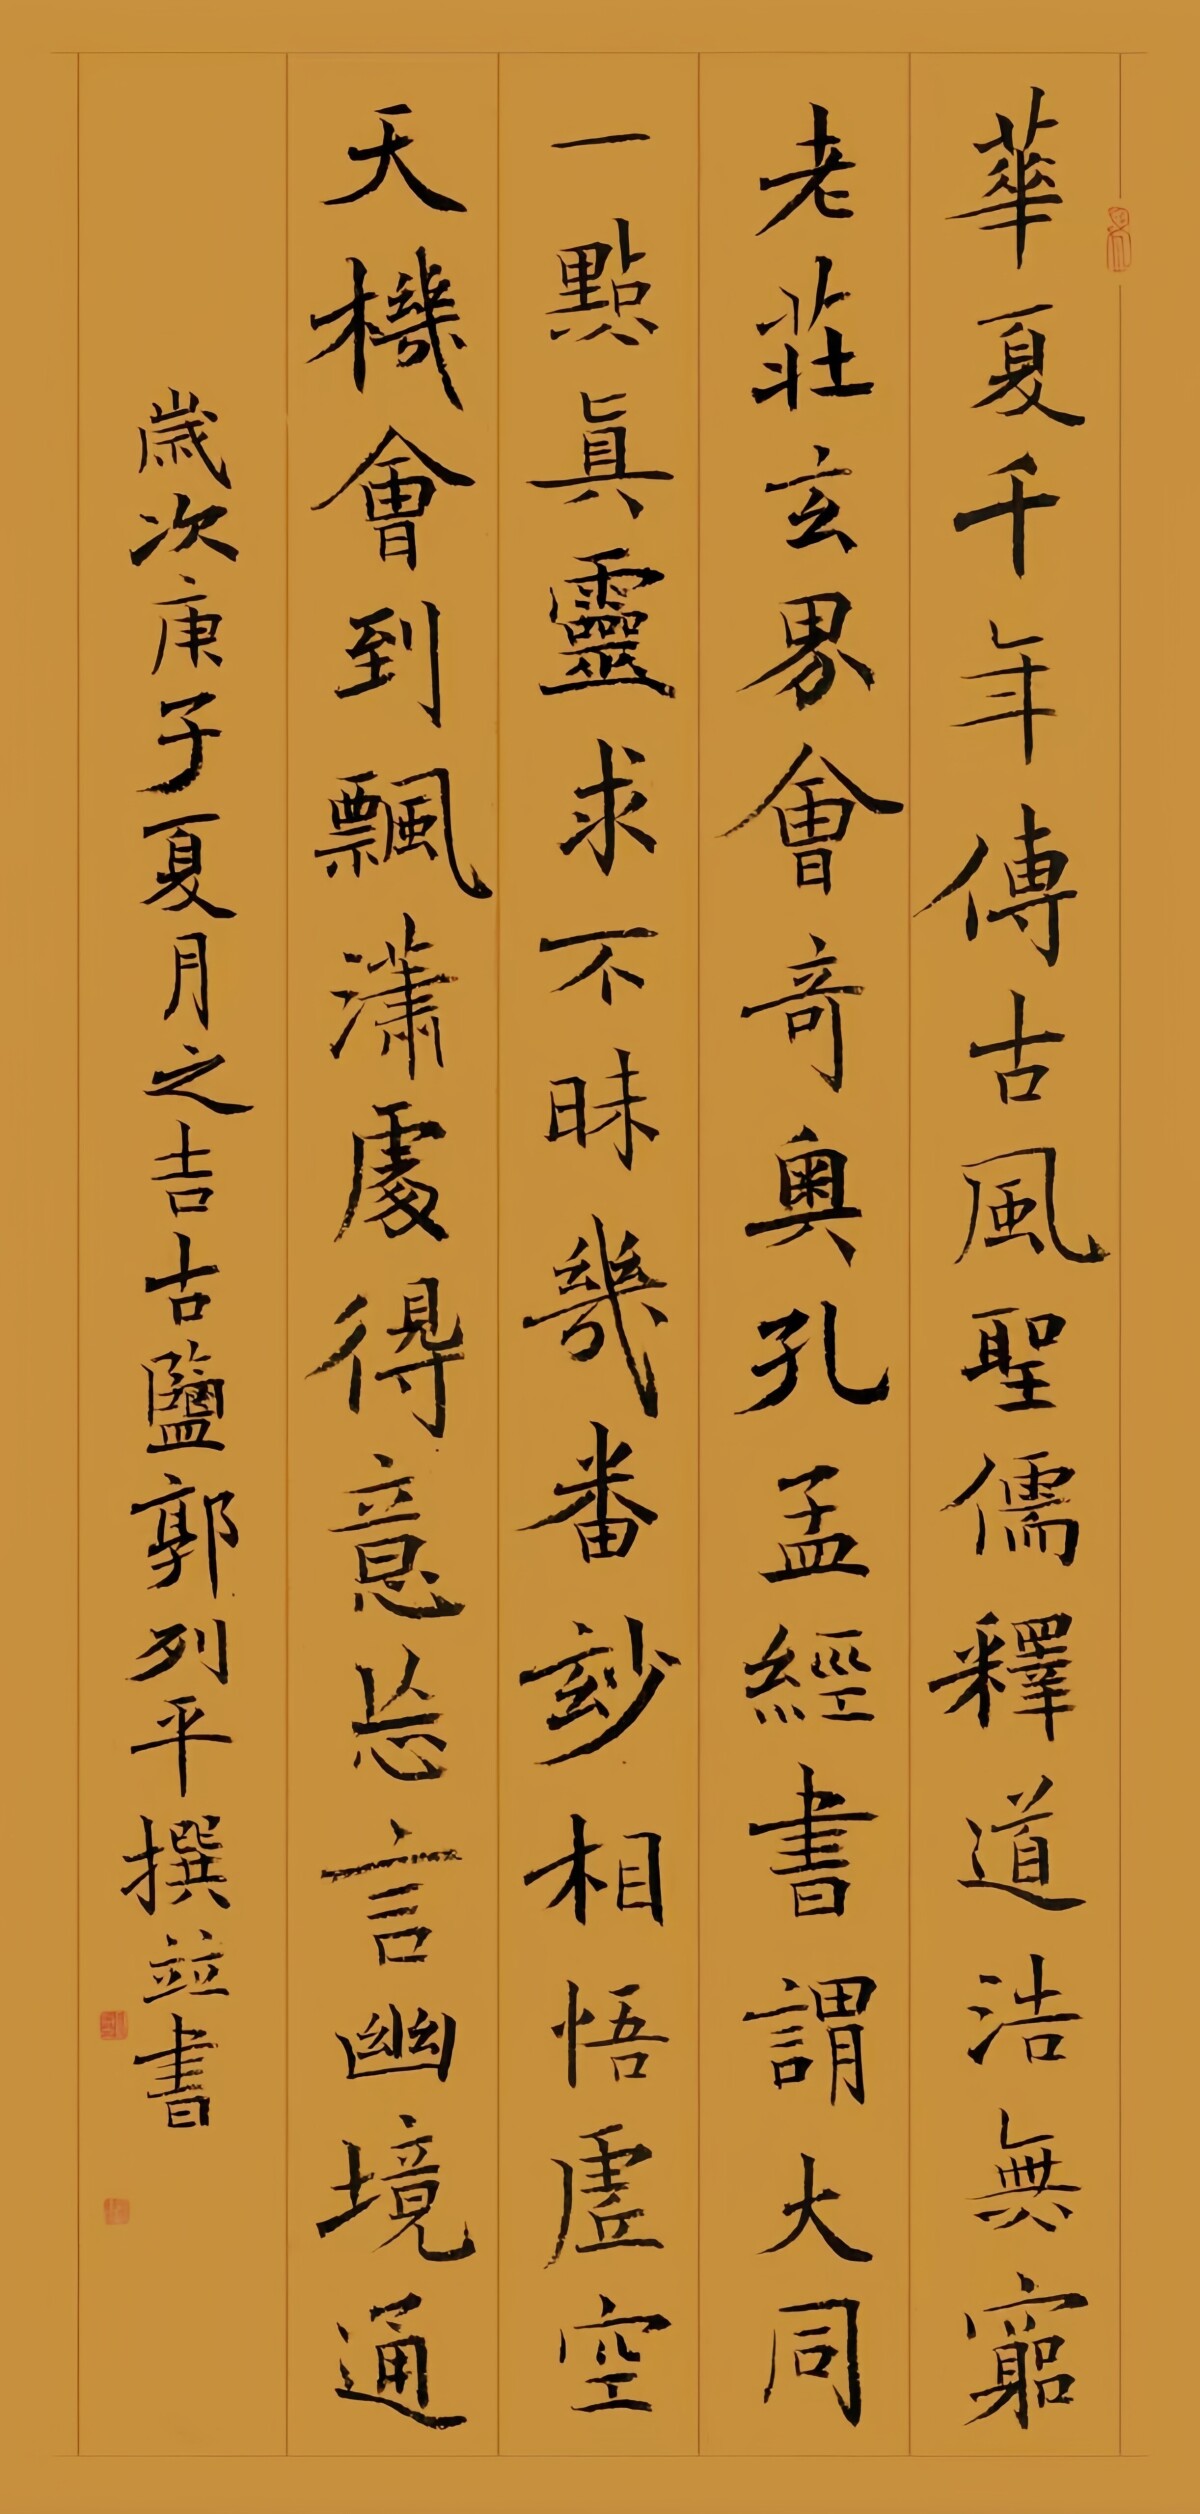 華夏千年傳古風聖儒釋道浩無窮
老莊玄界會奇奧孔孟經書謂大同
一點眞靈求不昧幾番玅相悟虛空
天機會到飄瀟處得意忘言幽境通
歲次庚子夏月之吉古鹽郭列平撰並書